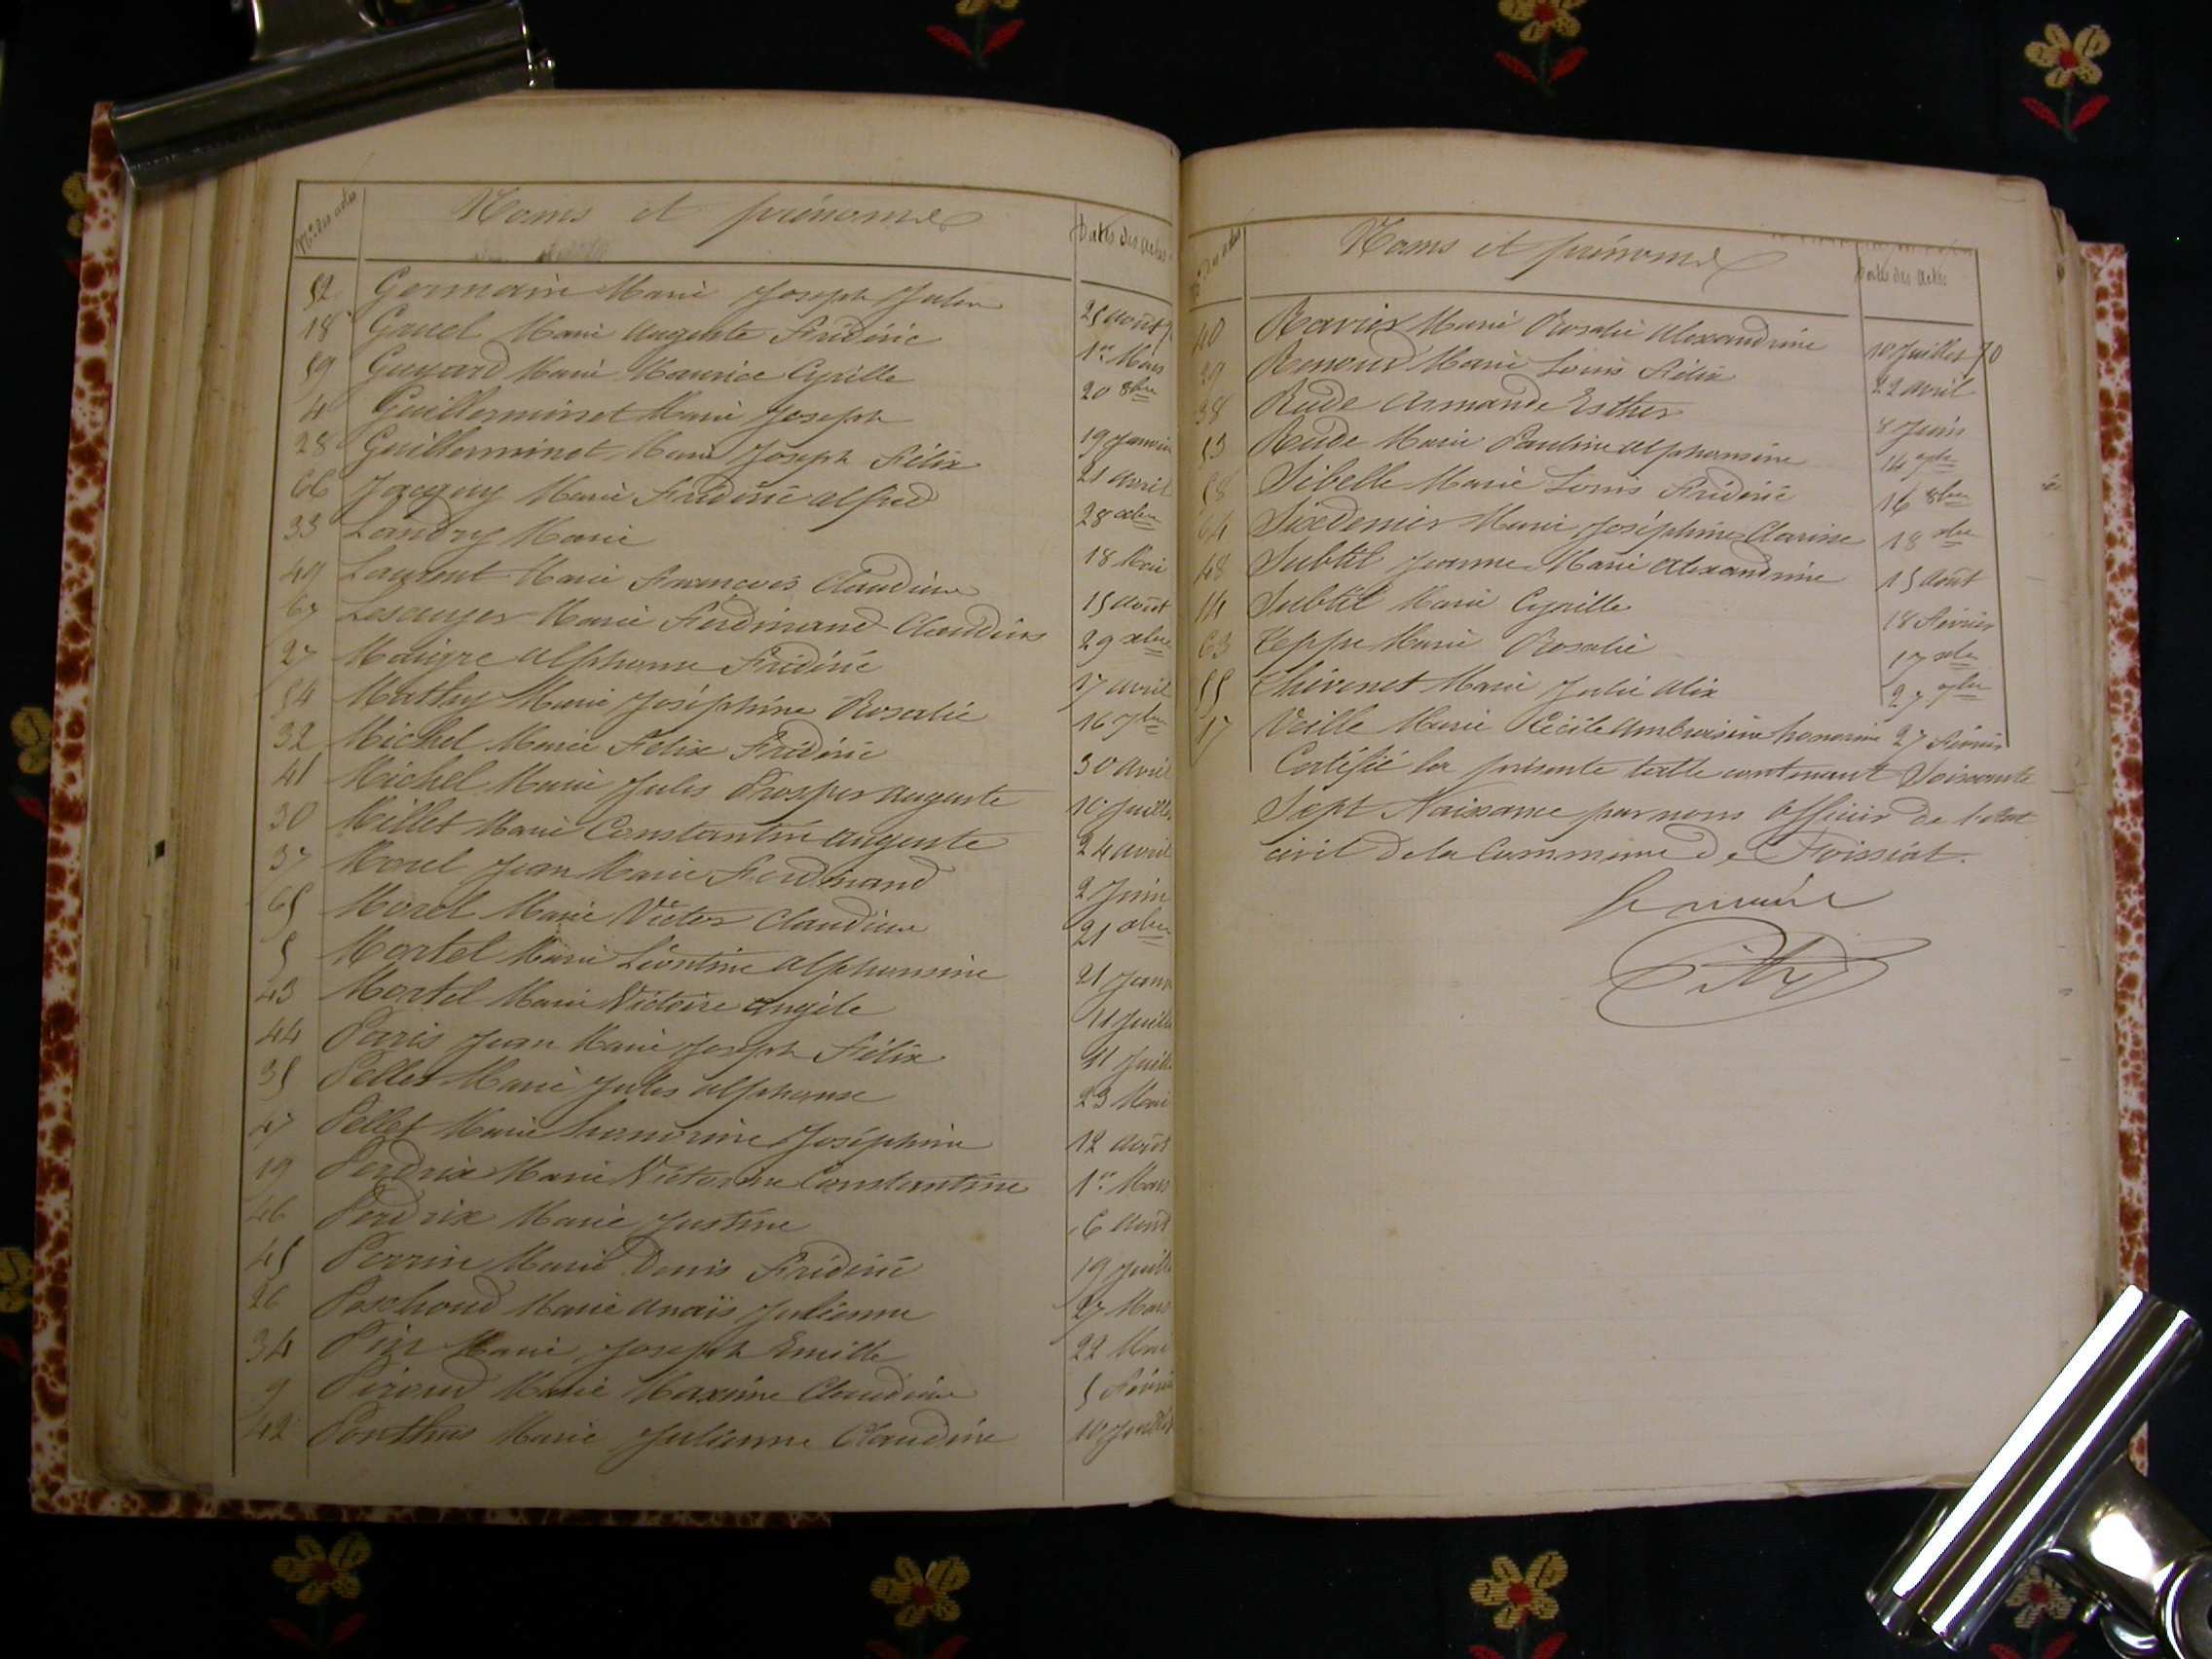 Nos des actes Noms et prénoms Dates des actes
52 Germain Marie Joseph Julien 25 août
18 Gruel Marie Auguste Frédéric 1er Mars
59 Guyard Marie Maurice Cyrille 20 8bre
4 Guillerminet Marie Joseph 19 Janvier
28 Guillerminet Marie Joseph Félix 21 avril
66 Marie Frédéric alfred 28 xbre
33 Landry Marie 18 Mai
49 Laurent Marie François Claudine 15 août
67 Marie Ferdinand Claudius 29 xbre
27 Maigre alphonse Frédéric 17 avril
54 Mathy Marie Joséphine Rosalie 16 7bre
32 Michel Marie Felix Frédéric 30 avril
41 Michel Marie Jules Prosper auguste 10 Juillet
30 Millet Marie Constantin auguste 24 avril
37 Morel Jean Marie Ferdinand 2 Juin
65 Morel Marie Victor Claudius 21 xbre
5 Martel Marie Léontine alphonsine 21 Janv
43 Martel Marie Victoire angèle 11 Juill
44 Paris Jean Marie Joseph Félix 11 Juill
35 Pellet Marie Jules alphonse 23 Mai
47 Pellet Marie honorine Joséphine 12 août
19 Perdrix Marie Victorine Constantine 1er Mars
46 Perdrix Marie Justine 6 août
45 Perrin Marie Denis Frédéric 19 Juill
26 Marie anaïs Julienne 27 Mars
34 Marie Joseph Emille 22 Mai
9 Piroud Marie Maxime Claudine 5 Février
42 Ponthus Marie Julienne Claudine 10 Juillet
Nos des actes Noms et prénoms Dates des actes
40 Ravier Marie Rosalie Alexandrine 10 Juillet 70
29 Renoud Marie Louis Félix 22 avril
38 Rude Armande Esther 8 Juin
53 Rude Marie Pauline alphonsine 14 7bre
58 Sibelle Marie Louis Frédéric 16 8bre
64 Sixdenier Marie Joséphine Clarine 18 xbre
48 Subtil Jeanne Marie Alexandrine 15 Août
14 Subtil Marie Cyrille 18 Février
63 Teppe Marie Rosalie 17 xbre
55 Thevenet Marie Julie alix 27 7bre
17 Veille Marie Cécile Ambroisine honorine 27 Février
Certifié la présente table contenant Soixante
Sept Naissance par nous Officier de l'état
civil de la Commune de Foissiat.
Le maire